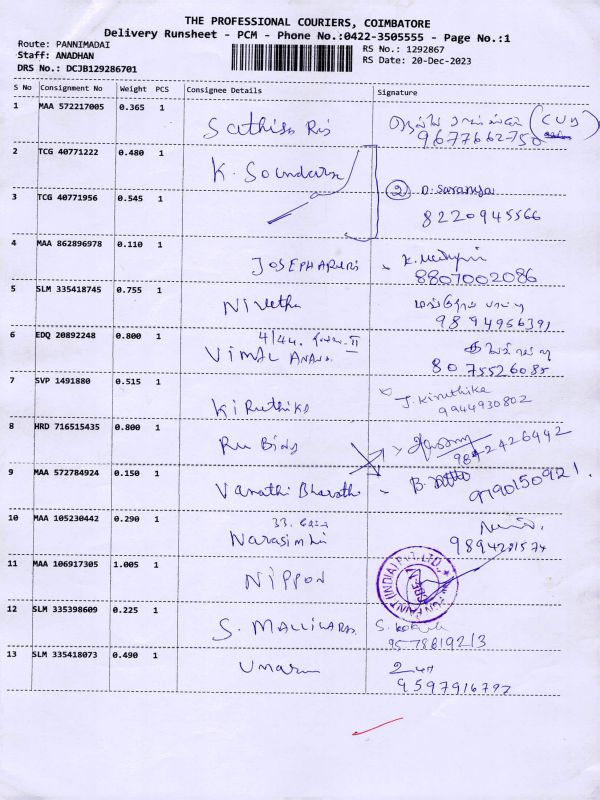 THE PROFESSIONAL COURIERS, COIMBATORE
Delivery Runsheet - PCM - Phone No.:0422-3505555 - Page No.:1
Route: PANNIMADAI
RS No.: 1292867
Staff: ANADHAN
RS Date: 20-Dec-2023
DRS No.: DCJB129286701
S No Consignment No Weight PCS Consignee Details Signature
1 MAA 572217005 0.365 1
(CUB)
9677662750
2 TCG 40771222 0.480 1 K. Soundara
② D. Saranya
3 TCG 40771956 0.545 1
8220945566
4 MAA 862896978 0.110 1
8807002086
5 SLM 335418745 0.755 1 Nivetha
9894956391
6 EDQ 20892248 0.800 1 4/44. II
VIMAL ANAN.
8075526085
7 SVP 1491880 0.515 1 Kiruthika J. Kiruthika
9944930802
8 HRD 716515435 0.800 1
9842426992
9 MAA 572784924 0.150 1 Vanathi Bharathi
9790150921.
10 MAA 105230442 0.290 1 33.
Narasimhan
9894201574
11 MAA 106917305 1.005 1 NIPPON
PAINT (INDIA) PVT. LTD.
12 SLM 335398609 0.225 1
9578819213
13 SLM 335418073 0.490 1
9597916797